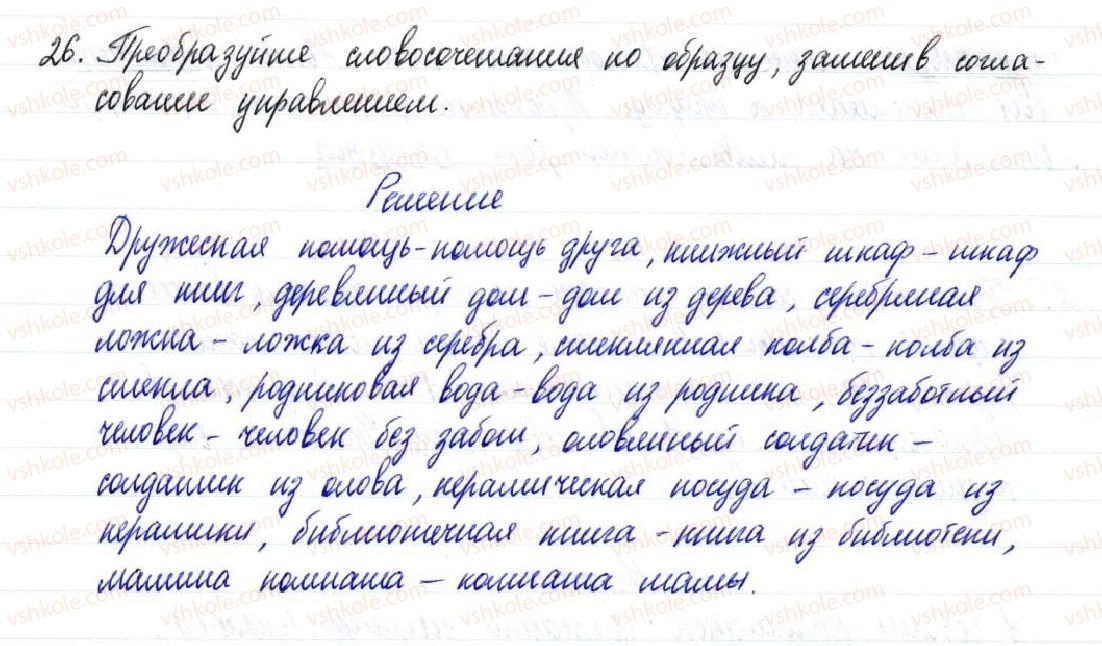 26. Преобразуйте словосочетания по образцу, заменив согла-
сование управлением.
Решение
Дружеская помощь - помощь друга, книжный шкаф - шкаф
для книг, деревянный дом - дом из дерева, серебряная
ложка - ложка из серебра, стеклянная колба - колба из
стекла, родниковая вода - вода из родника, беззаботный
человек - человек без забот, оловянный солдатик -
солдатик из олова, керамическая посуда - посуда из
керамики, библиотечная книга - книга из библиотеки,
мамина комната - комната мамы.